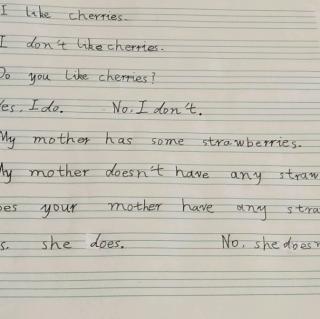 I like cherries.
I don't like cherries.
Do you like cherries?
Yes. I do. No. I don't.
My mother has some strawberries.
My mother doesn't have any straw
oes your mother have any stra
s. she does. No. she does